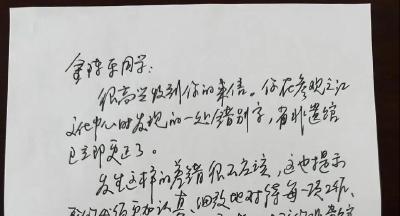 同学:
很高兴收到你的来信。你在参观之江
文化中心时发现的一处错别字,省非遗馆
已立即更正了。
发生这样的差错很不应该,这也提示
我们必须更加认真、细致地对待每一项工作,